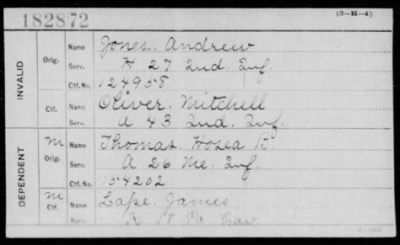 182872
(3-H-4)
INVALID
Orig.
Name Jones. Andrew
Serv. H 27 2nd. Inf.
Ctf. No. 124958
Ctf.
Name Oliver. Mitchell
Serv. A 43 Ind. Inf.
DEPENDENT
M
Orig.
Name Thomas. Hosea B
Serv. A 26 Me. Inf.
Ctf. No. 154202
M
Ctf.
Name Lape. James
Serv. Cav